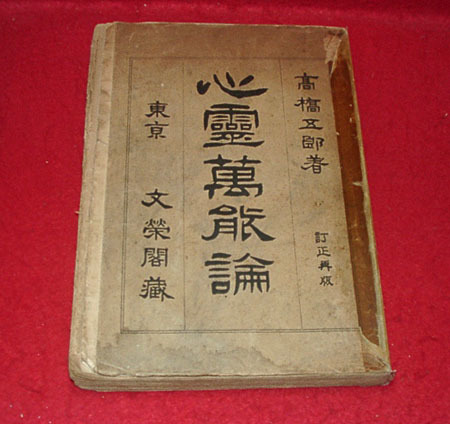 高橋五郎著
訂正再版
心靈萬能論
東京 文榮閣藏